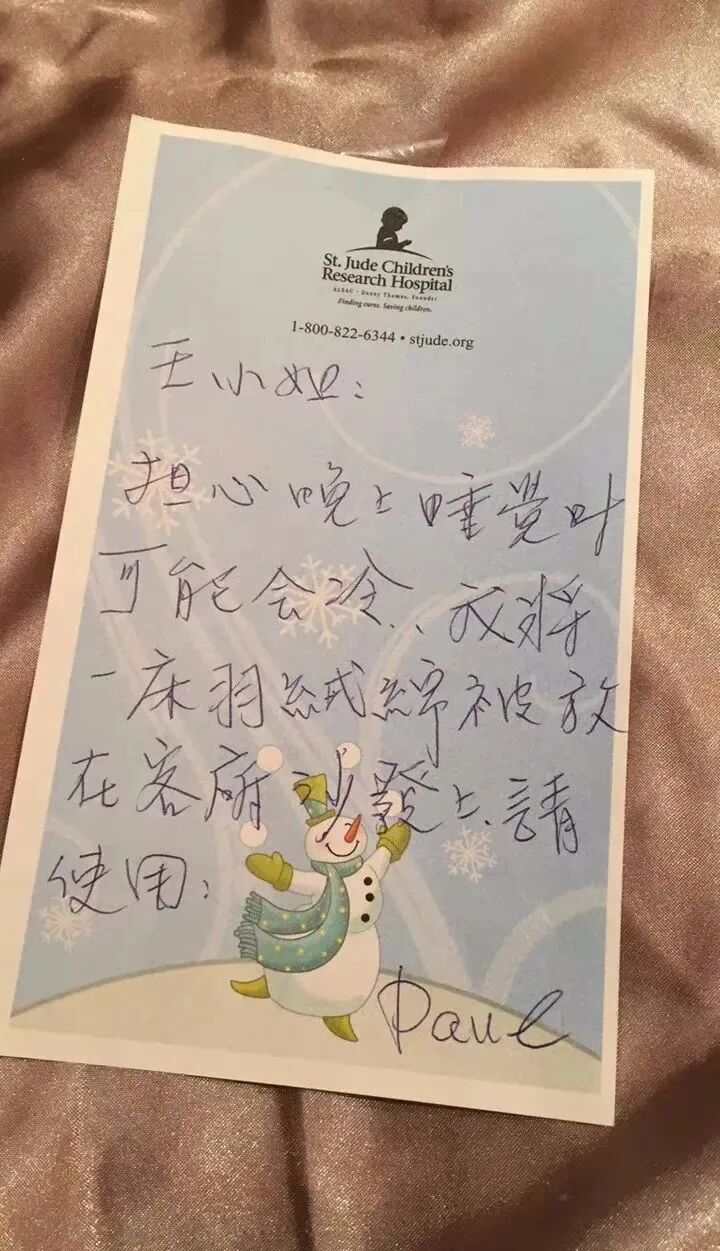 St. Jude Children's
Research Hospital
ALSAC • Danny Thomas, Founder
Finding cures. Saving children.
1-800-822-6344 • stjude.org
王小姐：
担心晚上睡觉时
可能会冷，我将
一床羽絨綿被放
在客廳沙發上，請
使用；
Paul